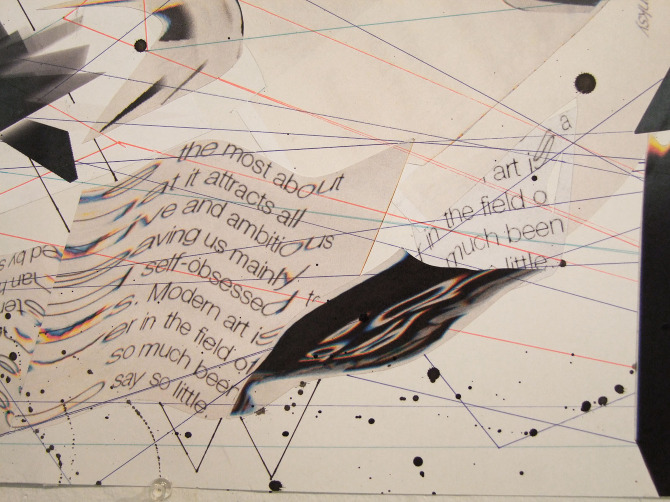 the most about
t it attracts all
ve and ambitious
aving us mainly
self-obsessed
s. Modern art is
er in the field of
so much been
say so little
a
art i
in the field o
much been
little